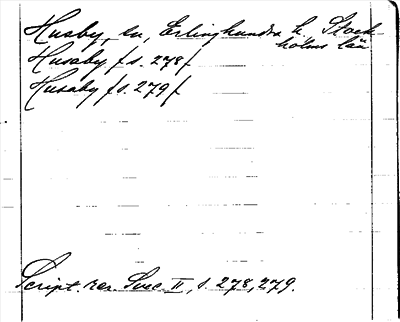 Husby, sn, Erlinghundra h. Stock-
holms län
Husaby f s. 278 f
Husaby f s. 279 f
Script. rer. Svec. II, s. 278, 279.